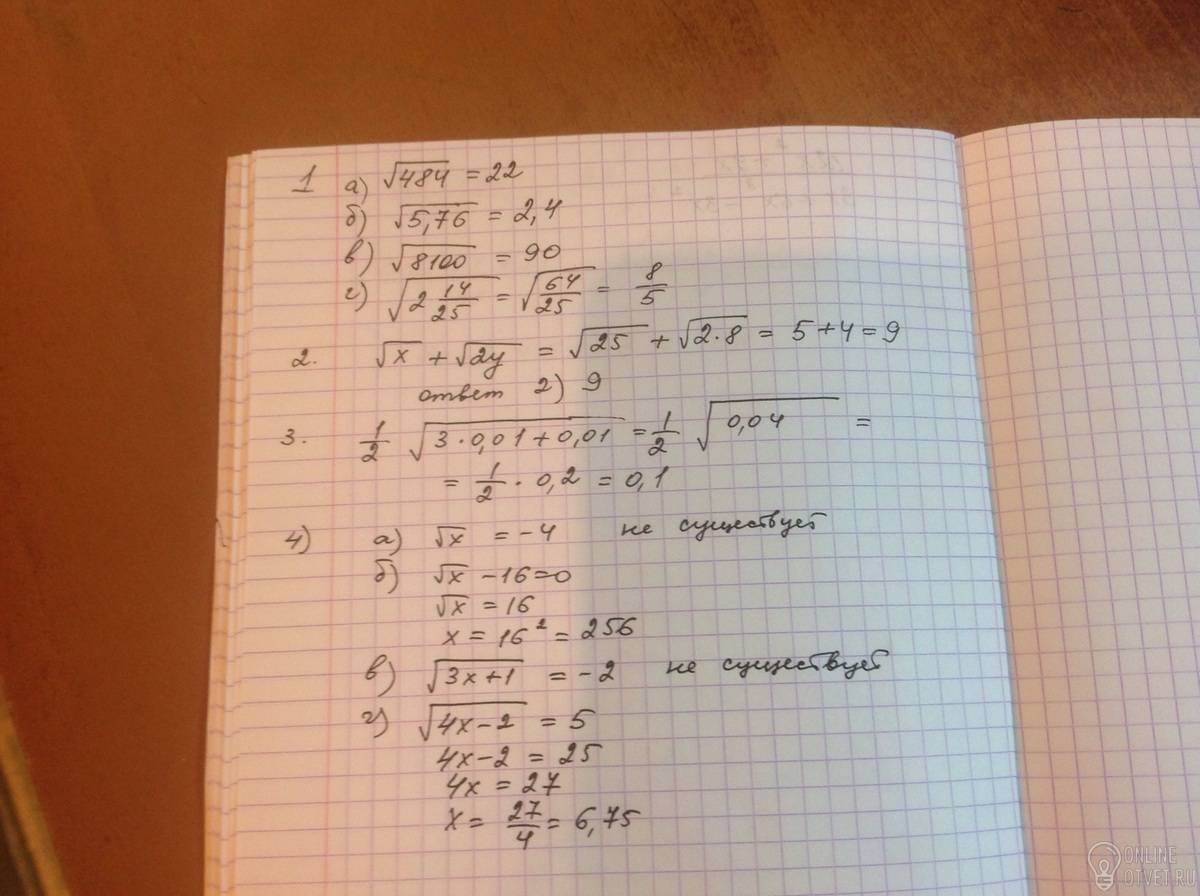 1 а) √484 = 22
б) √5,76 = 2,4
в) √8100 = 90
г) √(2 14/25) = √(64/25) = 8/5
2. √x + √2y = √25 + √2·8 = 5+4=9
ответ 2) 9
3. 1/2 √(3·0,01+0,01) = 1/2 √0,04 =
= 1/2 · 0,2 = 0,1
4) а) √x = -4 не существует
б) √x - 16=0
√x = 16
x = 16² = 256
в) √(3x+1) = -2 не существует
г) √(4x-2) = 5
4x-2 = 25
4x = 27
x = 27/4 = 6,75
ONLINE
OTVET.RU